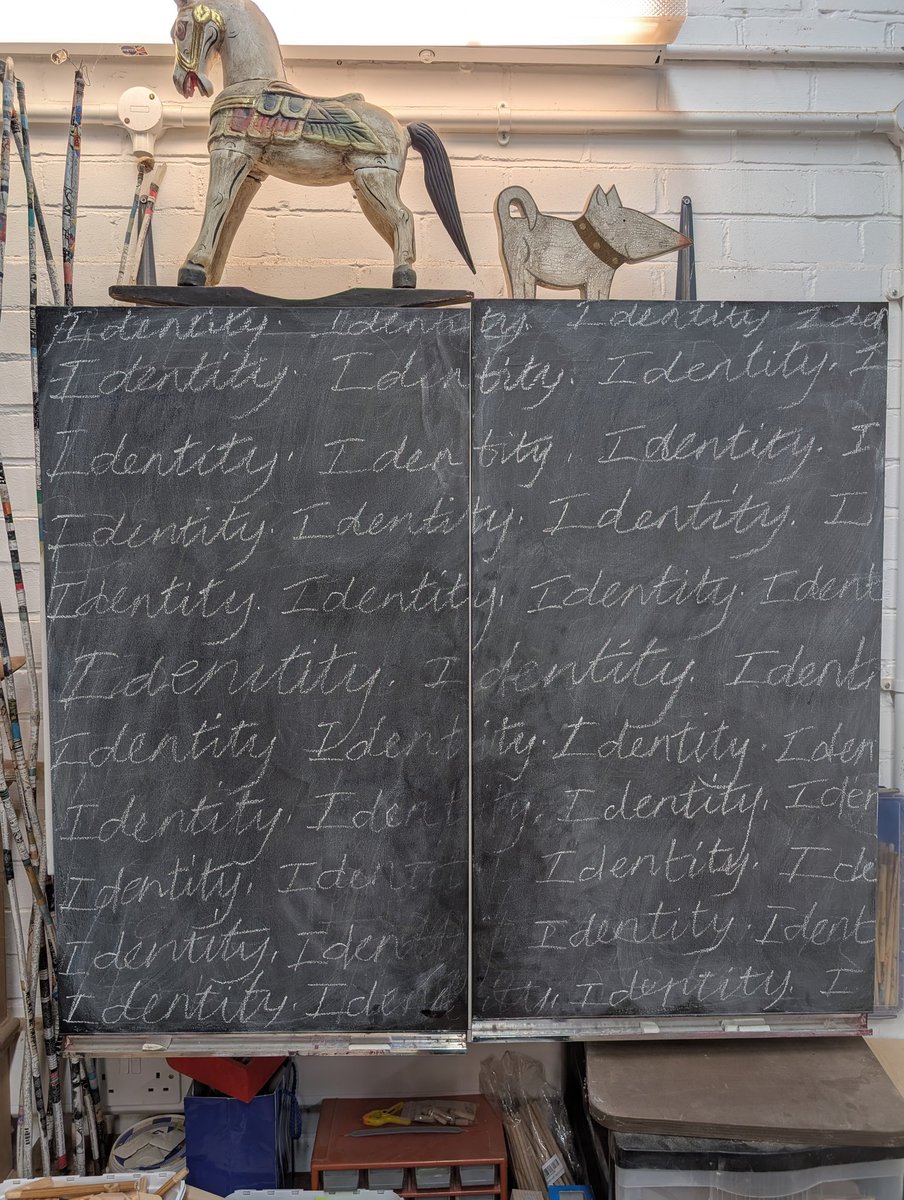 Identity. Identity. Identity Iden
Identity. Identity. Identity. I
Identity. Identity. Identity. I
Identity. Identity. Identity. I
Identity. Identity. Identity. Ident
Idenitity. Identity. Identi
Identity Identity. Identity. Iden
Identity. Identity, Identity. Iden
Identity. Ident Identity. Ide
Identity. Iden Identity. Ident
Identity. Identity, Identity. I